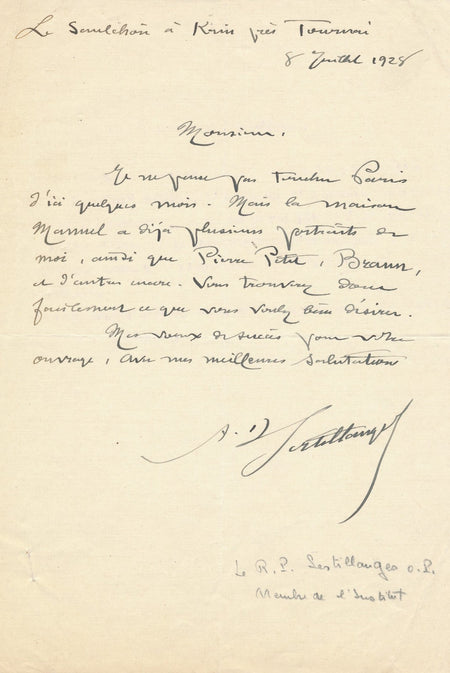 Le Saulchoir à Kain près Tournai
8 Juillet 1928
Monsieur,
Je ne pense pas toucher Paris
d'ici quelques mois. Mais la maison
Manuel a déjà plusieurs portraits de
moi, ainsi que Pierre Petit, Braun,
et d'autres encore. Vous trouverez donc
facilement ce que vous voulez bien désirer.
Mes vœux de succès pour votre
ouvrage, avec mes meilleures salutations
A. D Sertillanges
Le R. P. Sertillanges O.P.
Membre de l'Institut